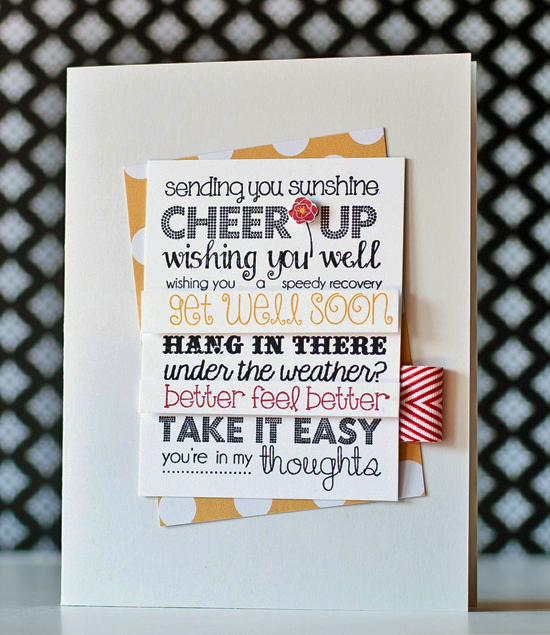 sending you sunshine
CHEER UP
wishing you well
wishing you a speedy recovery
get well soon
HANG IN THERE
under the weather?
better feel better
TAKE IT EASY
you're in my thoughts